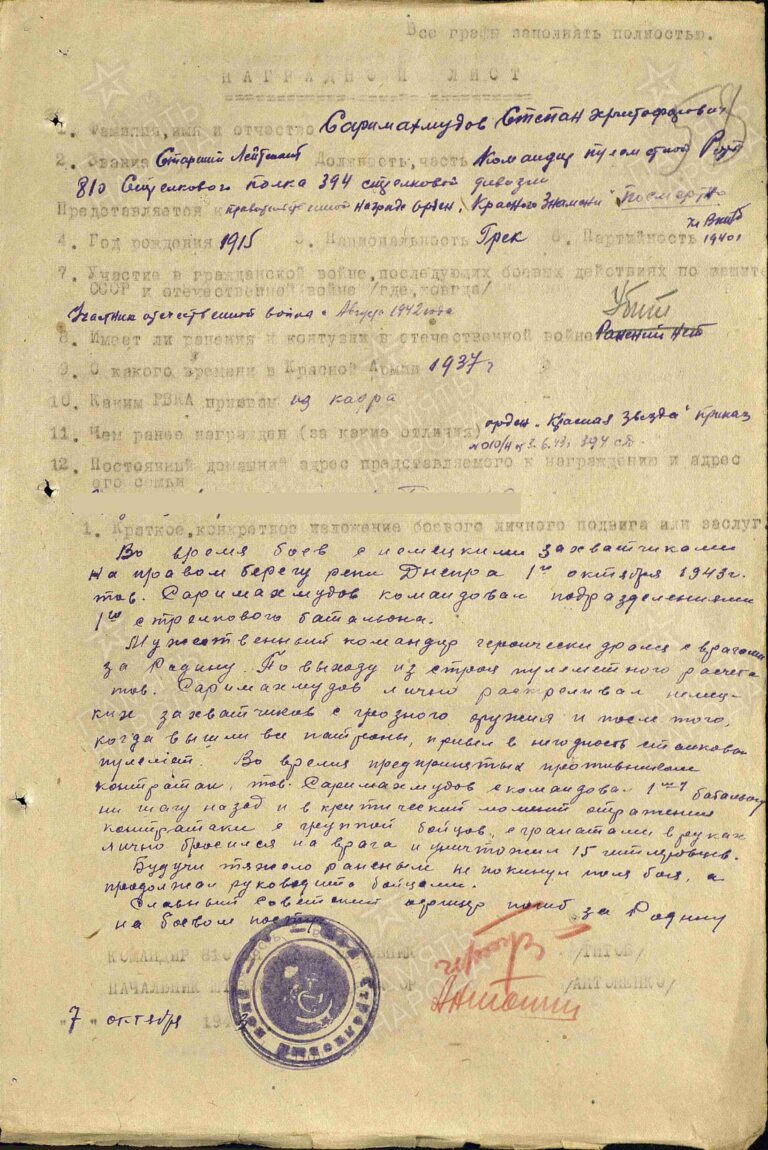 Все графы заполнять полностью.
НАГРАДНОЙ ЛИСТ
58
1. Фамилия, имя и отчество Саримахмудов Степан Христофорович
2. Звание Старший Лейтенант Должность, часть Командир пулеметной Роты
810 Стрелкового полка 394 стрелковой дивизии
Представляется к правительственной награде орден "Красного Знамени" посмертно
4. Год рождения 1915 5. Национальность Грек 6. Партийность 1940г
7. Участие в гражданской войне, последующих боевых действиях по защите
СССР и отечественной войне /где, когда/
Участник отечественной война с Августа 1942 года
Убит
8. Имеет ли ранения и контузии в отечественной войне Ранений нет
9. С какого времени в Красной Армии 1937 г
10. Каким РВКА призван из кадра
11. Чем ранее награжден (за какие отличия) орден "Красная Звезда" приказ
№ 010/Н 3.6.43г 394 сд
12. Постоянный домашний адрес представляемого к награждению и адрес
его семьи
1. Краткое, конкретное изложение боевого личного подвига или заслуг.
Во время боев с немецкими захватчиками
на правом берегу реки Днепра 1го октября 1943г.
тов. Саримахмудов командовал подразделениями
1го стрелкового батальона.
Мужественный командир героически дрался с врагами
за Родину. По выходу из строя пулеметного расчета
тов. Саримахмудов лично растреливал немец-
ких захватчиков с грозного оружия и после того,
когда вышли все патроны, привел в негодность станковый
пулемет. Во время предпринятых противником
контратак, тов. Саримахмудов скомандовал батальону
ни шагу назад и в критический момент отражения
контратаки с группой бойцов, с гранатами в руках
лично бросился на врага и уничтожил 15 гитлеровцев.
Будучи тяжело раненым не покинул поля боя, а
продолжал руководить бойцами.
Славный Советский офицер погиб за Родину
на боевом посту.
КОМАНДИР 810 /ТИТОВ/
НАЧАЛЬНИК /АНТОНЕНКО/
"7" октября
ПАМЯТЬ НАРОДА